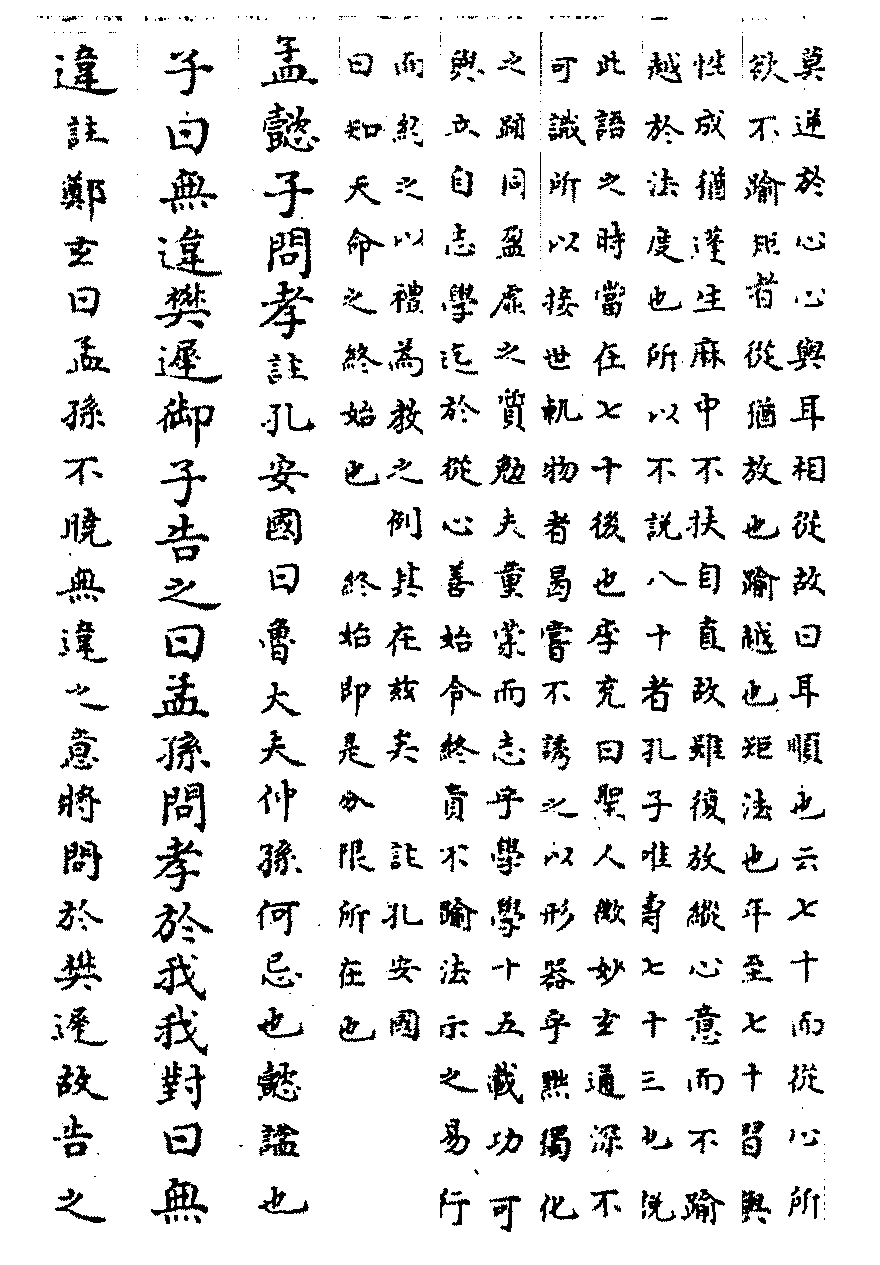 莫逆於心心與耳相從故曰耳順也云七十而從心所
欲不踰矩者從猶放也踰越也矩法也年至七十習與
性成猶蓬生麻中不扶自直故雖復放縱心意而不踰
越於法度也所以不説八十者孔子唯壽七十三也説
此語之時當在七十後也李充曰聖人微妙玄通深不
可識所以接世軌物者曷嘗不誘之以形器乎黙獨化
之跡同盈虛之質勉夫童蒙而志乎學學十五載功可
與立自志學迄於從心善始令終貴不踰法示之易行
而約之以禮為教之例其在茲矣　註孔安國
曰知天命之終始也　終始即是分限所在也
孟懿子問孝註孔安國曰魯大夫仲孫何忌也懿諡也
子曰無違樊遲御子告之曰孟孫問孝於我我對曰無
違註鄭玄曰孟孫不曉無違之意將問於樊遲故告之